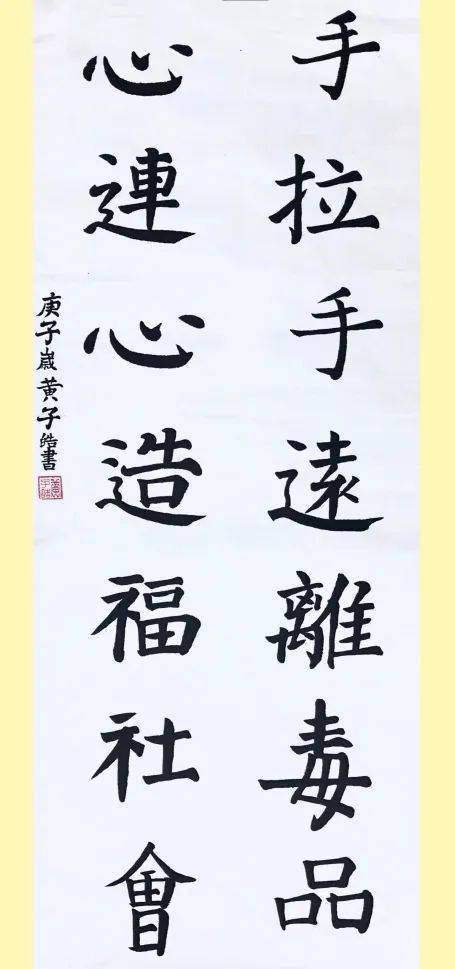 手拉手遠離毒品
心連心造福社會
庚子歲黃子皓書